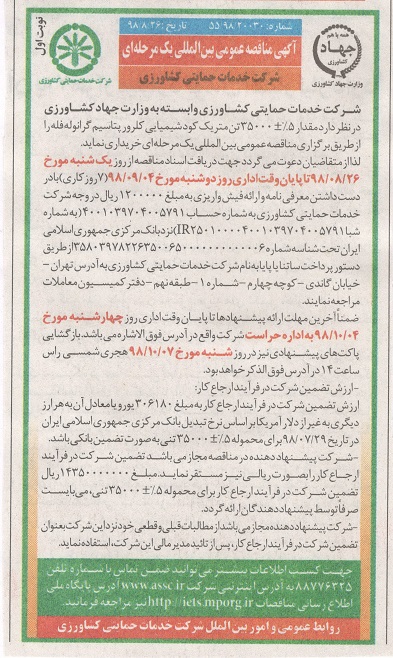 شماره: ۵۵/۹۸/۲۰۰۳۰ تاریخ: ۹۸/۸/۲۶
نوبت اول
همه با هم
جهاد
کشاورزی
وزارت جهاد کشاورزی
آگهی مناقصه عمومی بین‌المللی یک مرحله‌ای
شرکت خدمات حمایتی کشاورزی
شرکت خدمات حمایتی کشاورزی
شرکت خدمات حمایتی کشاورزی وابسته به وزارت جهاد کشاورزی
در نظر دارد مقدار ۵٪± ۳۵۰۰۰ تن متریک کود شیمیایی کلرور پتاسیم گرانوله فله را
از طریق برگزاری مناقصه عمومی بین‌المللی یک مرحله‌ای خریداری نماید.
لذا از متقاضیان دعوت می گردد جهت دریافت اسناد مناقصه از روز یک شنبه مورخ
۹۸/۰۸/۲۶ تا پایان وقت اداری روز دوشنبه مورخ ۹۸/۰۹/۰۴ (۷ روز کاری) با در
دست داشتن معرفی نامه و ارائه فیش واریزی به مبلغ ۱۲۰۰۰۰۰ ریال در وجه شرکت
خدمات حمایتی کشاورزی به شماره حساب ۴۰۰۱۰۳۹۷۰۴۰۰۵۷۹۱ (به شماره
شبا IR۲۵۰۱۰۰۰۰۴۰۰۱۰۳۹۷۰۴۰۰۵۷۹۱) نزد بانک مرکزی جمهوری اسلامی
ایران تحت شناسه شماره از طریق
دستور پرداخت ساتنا یا پایا به نام شرکت خدمات حمایتی کشاورزی به آدرس تهران -
خیابان گاندی - کوچه چهارم - شماره ۱ - طبقه نهم - دفتر کمیسیون معاملات
مراجعه نمایند.
ضمناً آخرین مهلت ارائه پیشنهادها تا پایان وقت اداری روز چهارشنبه مورخ
۹۸/۱۰/۰۴ به اداره حراست شرکت واقع در آدرس فوق الاشاره می باشد. بازگشایی
پاکت های پیشنهادی نیز در روز شنبه مورخ ۹۸/۱۰/۰۷ هجری شمسی راس
ساعت ۱۴ در آدرس فوق الذکر خواهد بود.
-ارزش تضمین شرکت در فرآیند ارجاع کار:
ارزش تضمین شرکت در فرآیند ارجاع کار به مبلغ ۳۰۶۱۸۰ یورو یا معادل آن به هر ارز
دیگری به غیر از دلار آمریکا بر اساس نرخ تبدیل بانک مرکزی جمهوری اسلامی ایران
در تاریخ ۹۸/۰۷/۲۹ برای محموله ۵٪± ۳۵۰۰۰ تنی به صورت تضمین بانکی باشد.
-شرکت پیشنهاد دهنده در مناقصه مجاز می باشد تضمین شرکت در فرآیند
ارجاع کار را بصورت ریالی نیز مستقر نماید. مبلغ ۱۴۳۵۰۰۰۰۰۰۰ ریال
تضمین شرکت در فرآیند ارجاع کار برای محموله ۵٪± ۳۵۰۰۰ تنی، می بایست
صرفاً توسط پیشنهاد دهندگان ارائه گردد.
-شرکت پیشنهاد دهنده مجاز می باشد از مطالبات قبلی و قطعی خود نزد این شرکت بعنوان
تضمین شرکت در فرآیند ارجاع کار، پس از تائید مدیر مالی این شرکت، استفاده نماید.
جهت کسب اطلاعات بیشتر می توانید ضمن تماس با شماره تلفن
۸۸۷۷۶۳۲۵ به آدرس اینترنتی شرکت www.assc.ir آدرس پایگاه ملی
اطلاع رسانی مناقصات http://iets.mporg.ir نیز مراجعه فرمایید.
روابط عمومی و امور بین الملل شرکت خدمات حمایتی کشاورزی